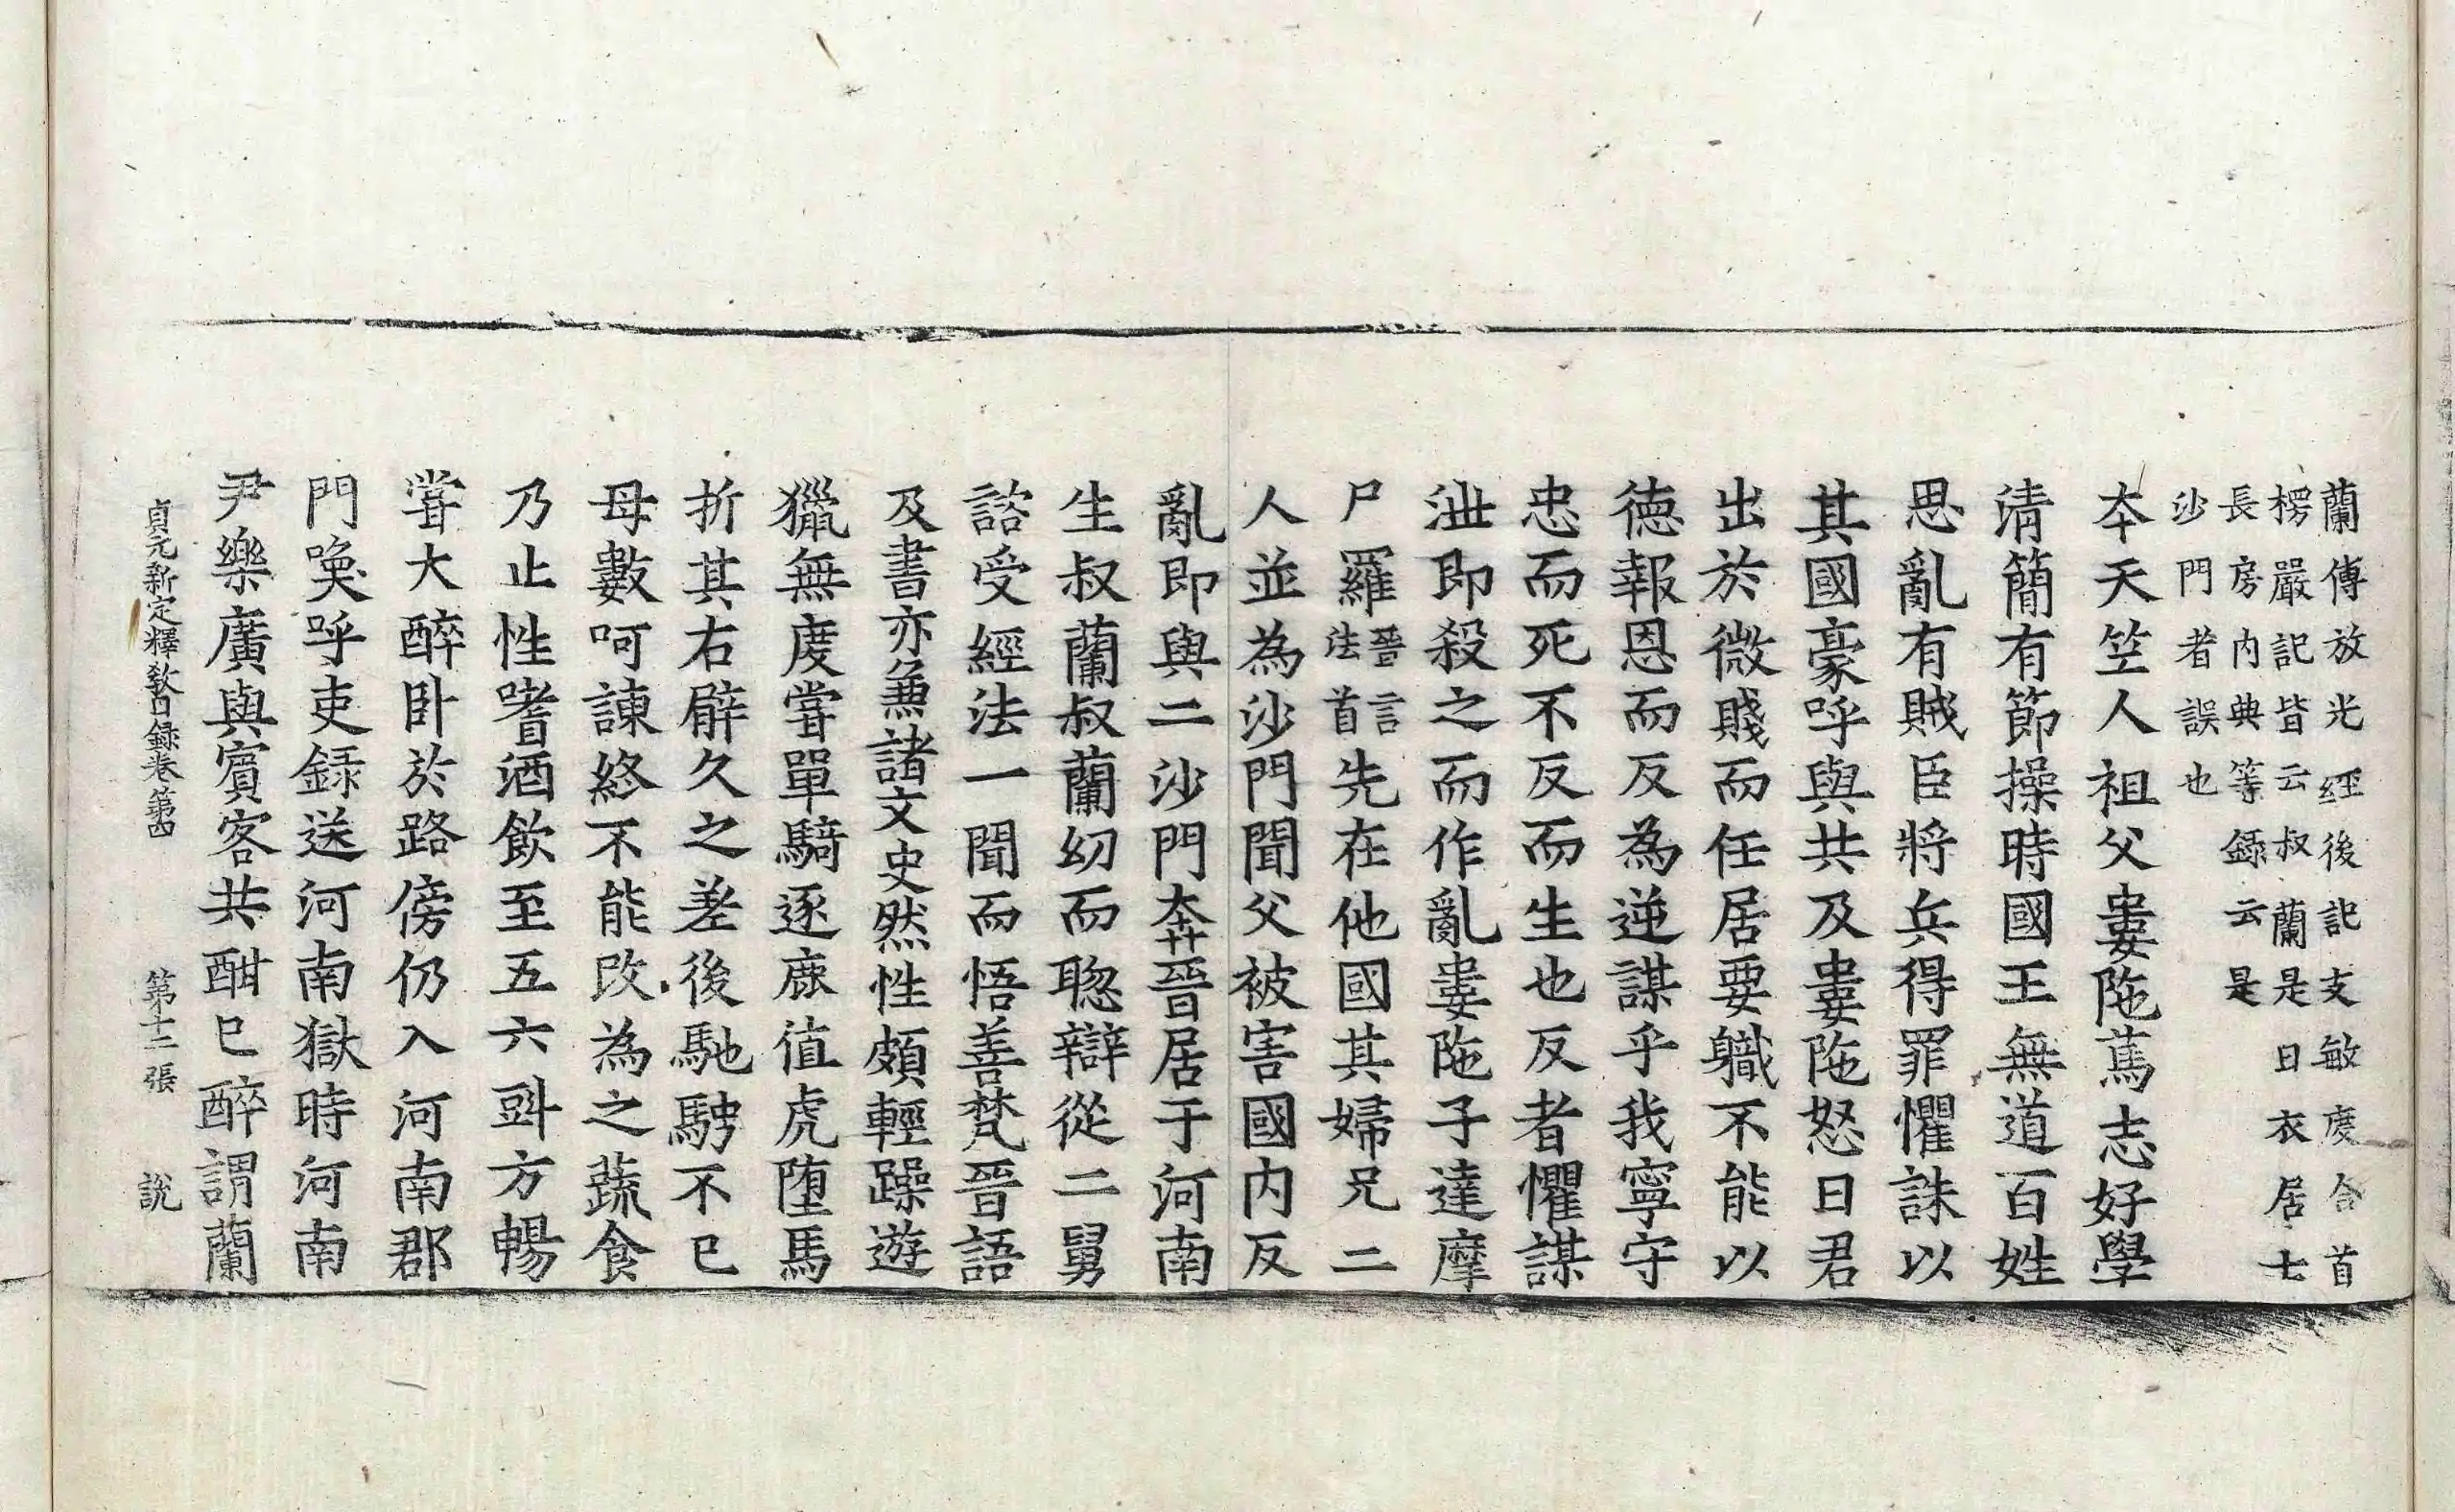 蘭傳放光經後記支敏度合首
楞嚴記皆云叔蘭是白衣居士
長房内典等録云是
沙門者誤也
本天竺人祖父婁陁蔫志好學
清簡有節操時國王無道百姓
思亂有賊臣將兵得罪懼誅以
其國豪呼與共及婁陁怒曰君
出於微賤而任居要職不能以
德報恩而反為逆謀乎我寧守
忠而死不反而生也反者懼謀
泄即殺之而作亂婁陁子達摩
尸羅晉言法首先在他國其婦兄二
人並為沙門聞父被害國内反
亂即與二沙門奔晉居于河南
生叔蘭叔蘭幼而聦辯從二舅
諮受經法一聞而悟善梵晉語
及書亦兼諸文史然性頗輕躁遊
獵無度甞單騎逐鹿值虎墮馬
折其右臂久之差後馳騁不已
母數呵諫終不能改為之蔬食
乃止性嗜酒飲至五六㪷方暢
甞大醉卧於路傍仍入河南郡
門喚呼吏録送河南獄時河南
尹樂廣與賓客共酣已醉謂蘭
貞元新定釋教目録卷第四 第十二張 說